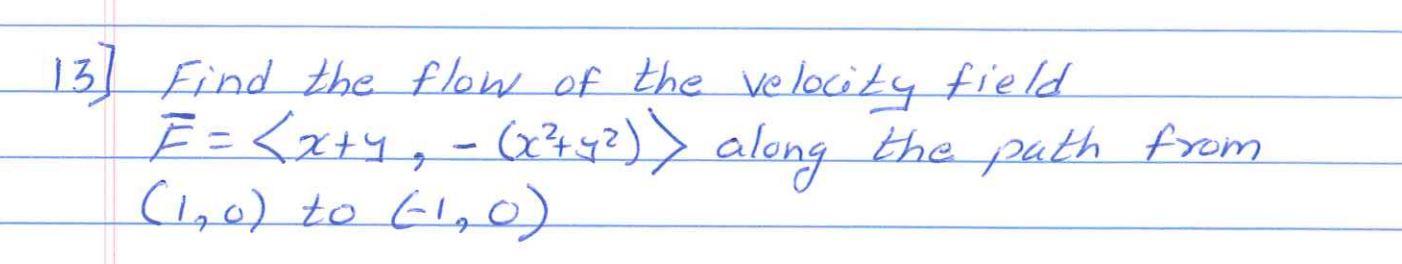 13] Find the flow of the velocity field
F̄ = <x+y, - (x²+y²)> along the path from
(1,0) to (-1,0)